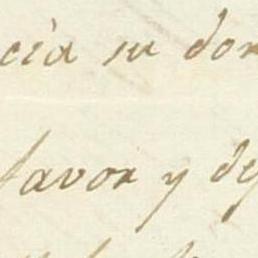 cia su don
favor y de